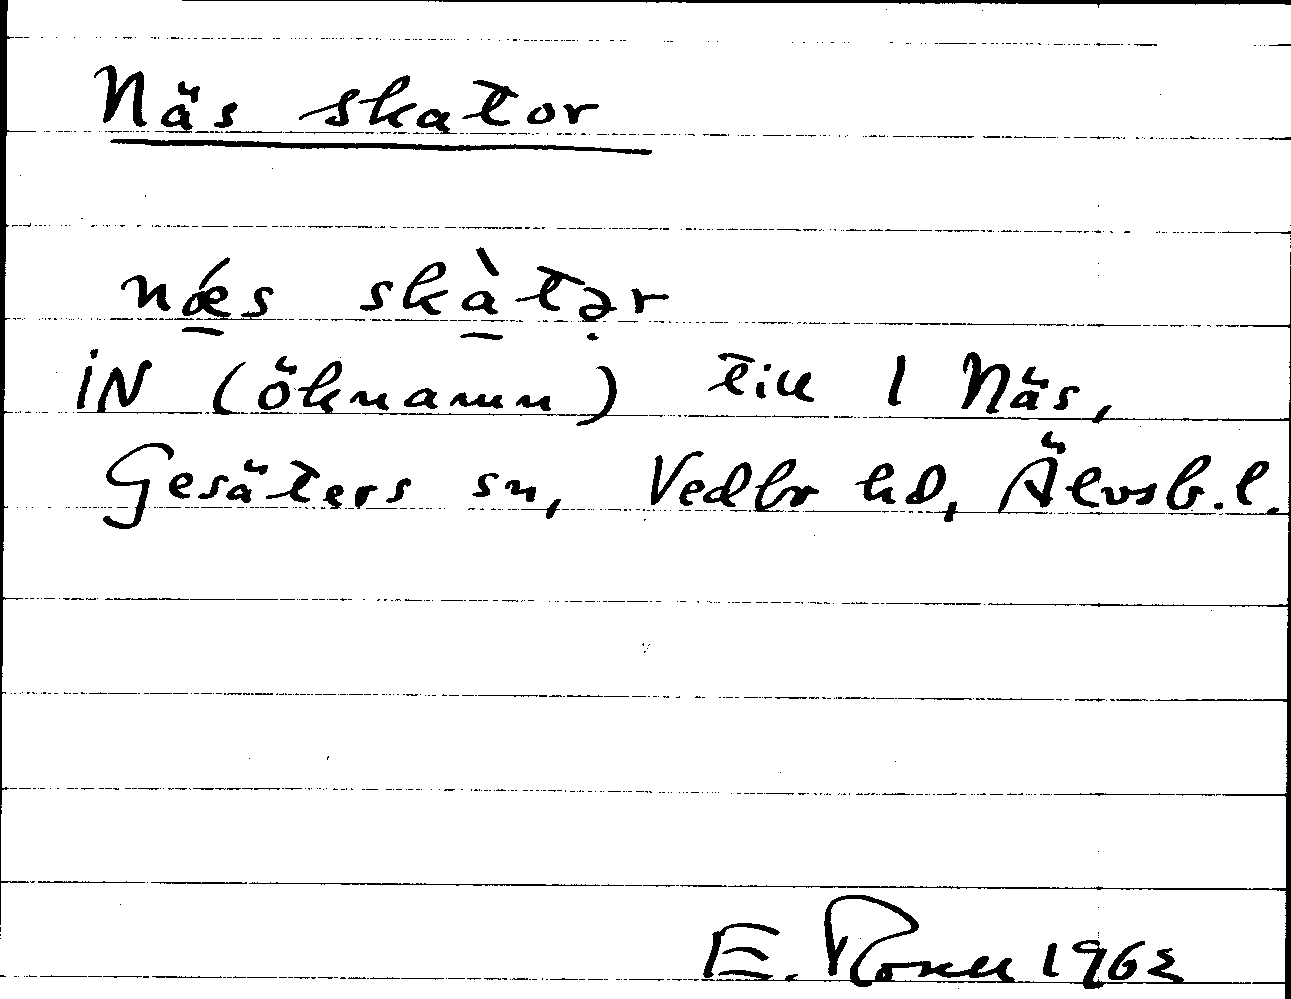 Näs skator
nǽs skàtər
iN (öknamn) till 1 Näs,
Gesäters sn, Vedbr hd, Älvsb. l.
E. 1962